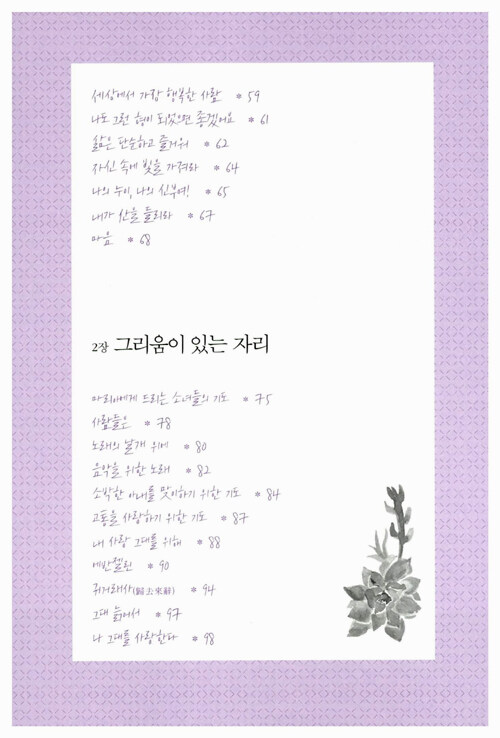 세상에서 가장 행복한 사람 * 59
나도 그런 형이 되었으면 좋겠어요 * 61
삶은 단순하고 즐거워 * 62
자신 속에 빛을 가져라 * 64
나의 누이, 나의 신부여! * 65
내가 산을 들리라 * 67
마음 * 68
2장 그리움이 있는 자리
마리아에게 드리는 소녀들의 기도 * 75
사람들은 * 78
노래의 날개 위에 * 80
음악을 위한 노래 * 82
소박한 아내를 맞이하기 위한 기도 * 84
고통을 사랑하기 위한 기도 * 87
내 사랑 그대를 위해 * 88
에반젤린 * 90
귀거래사(歸去來辭) * 94
그대 늙어서 * 97
나 그대를 사랑한다 * 98